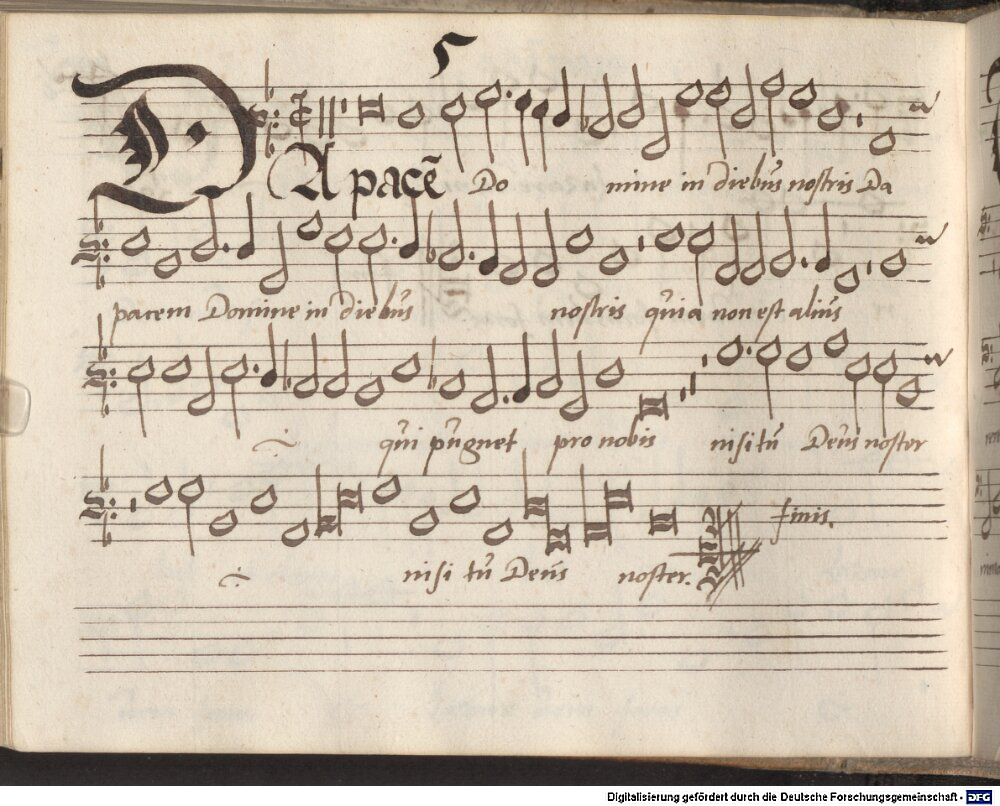 5
DA pacē Do mine in diebus nostris Da
pacem Domine in diebus nostris quia non est alius
qui pugnet pro nobis nisi tu Deus noster
finis.
nisi tu Deus noster.
Digitalisierung gefördert durch die Deutsche Forschungsgemeinschaft - DFG